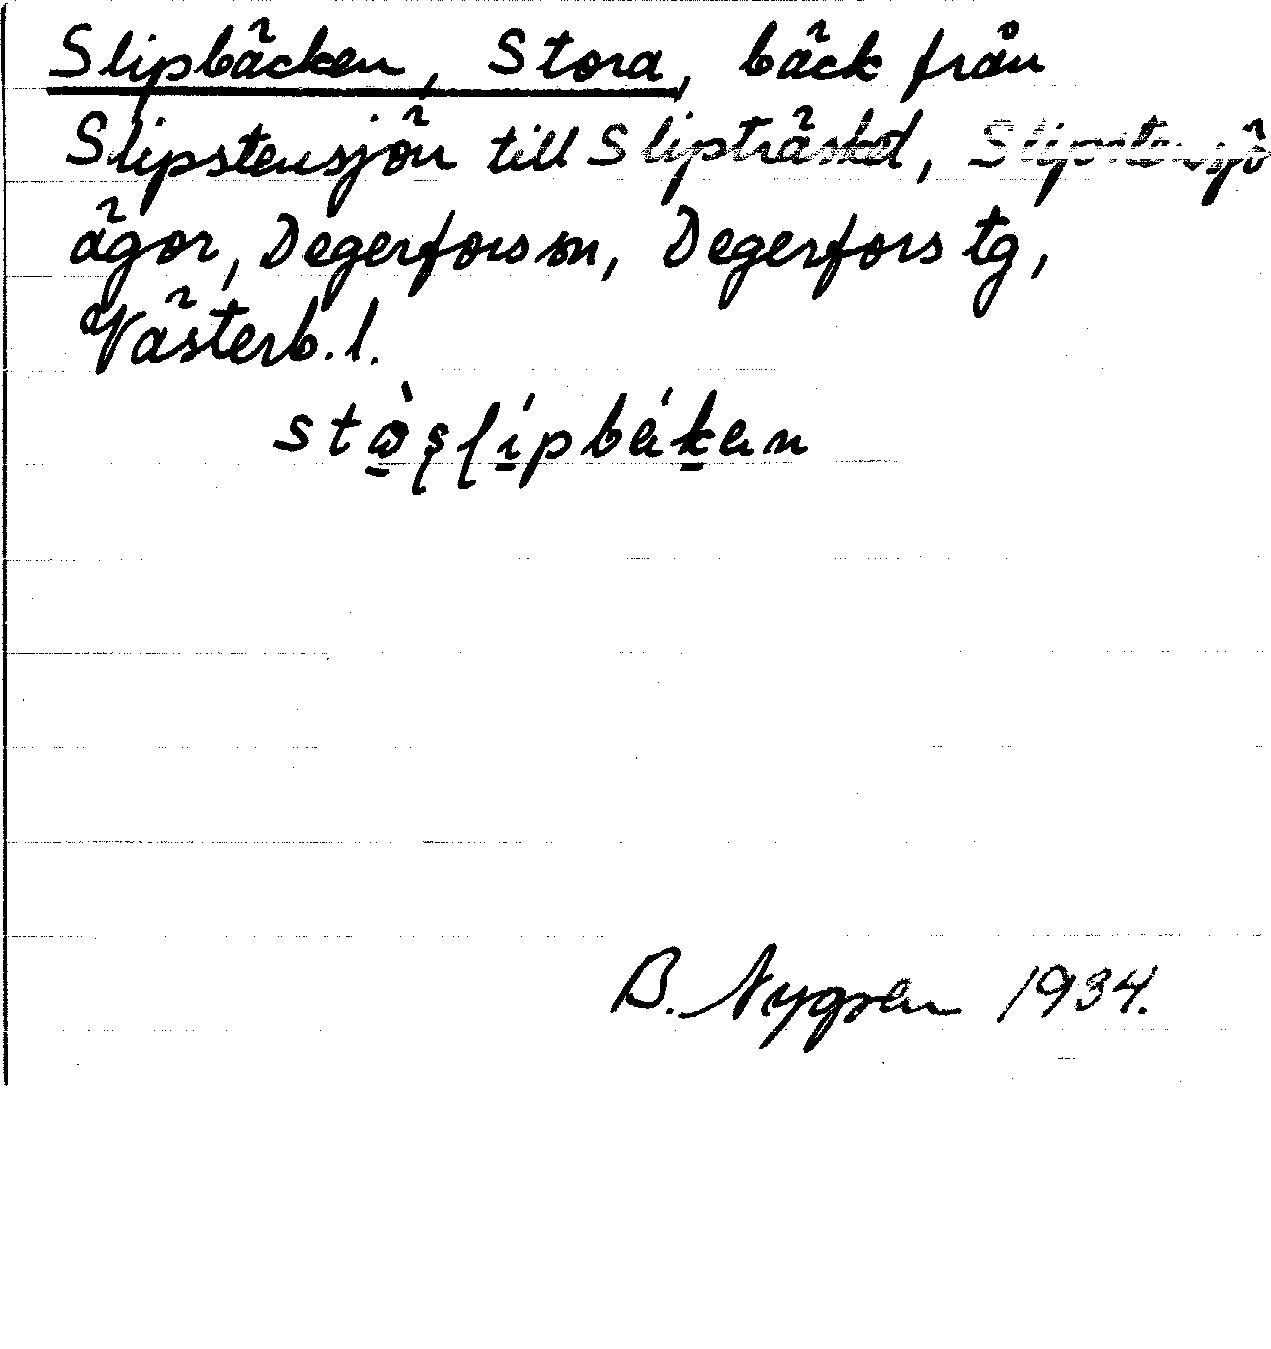 Slipbäcken, Stora, bäck från
Slipstensjön till Slipträsket, Slipstensjö
ägor, Degerfors sn, Degerfors tg,
Västerb. l.
B. Nygren 1934.